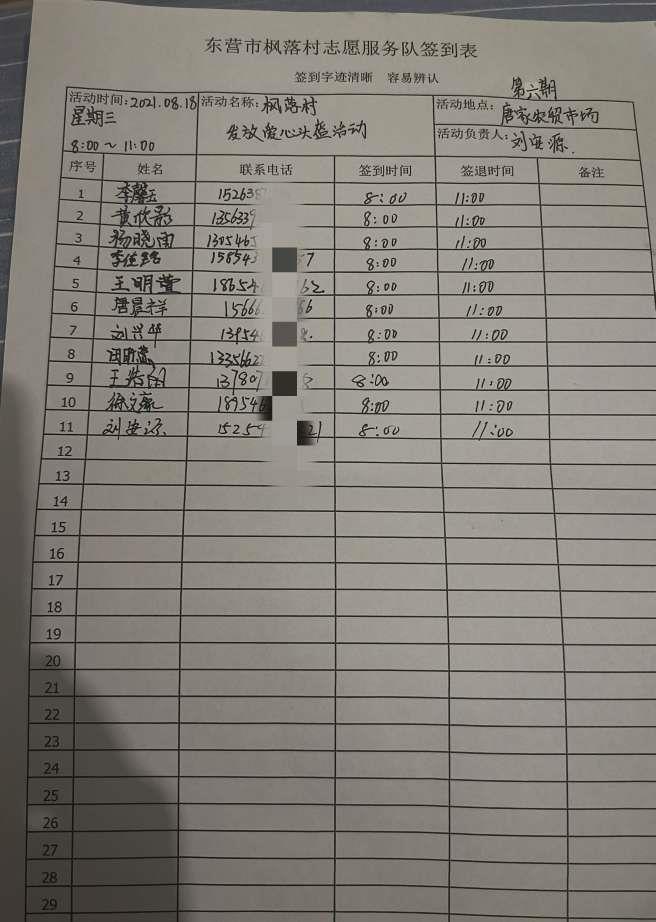 东营市枫落村志愿服务队签到表
签到字迹清晰 容易辨认
第六期
活动时间:2021.08.18
星期三
8:00~11:00
活动名称:枫落村
发放爱心头盔活动
活动地点:唐家农贸市场
活动负责人:刘安源.
序号 姓名 联系电话 签到时间 签退时间 备注
1 李馨玉 152638 8:00 11:00
2 黄欣彩 1356339 8:00 11:00
3 杨晓雨 1305465 8:00 11:00
4 158543 57 8:00 11:00
5 王明萱 18654 62 8:00 11:00
6 唐晨祥 15666 66 8:00 11:00
7 刘兴华 13954 8:00 11:00
8 1335662 8:00 11:00
9 王浩 13780 8:00 11:00
10 189546 8:00 11:00
11 刘安源 15254 21 8:00 11:00
12
13
14
15
16
17
18
19
20
21
22
23
24
25
26
27
28
29